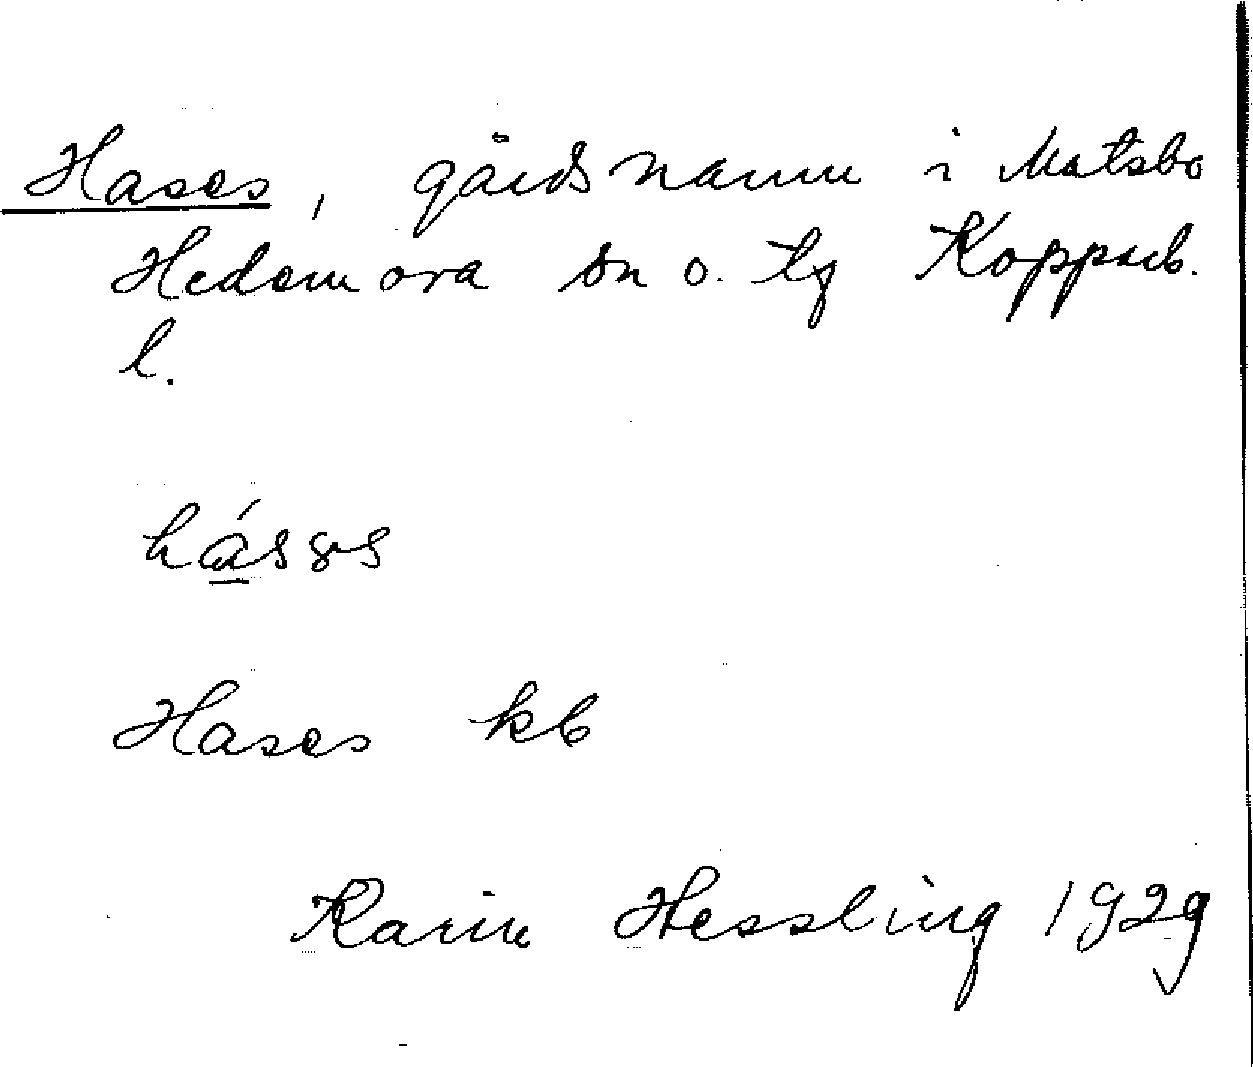 Hases, gårdsnamn i Matsbo
Hedemora sn o. tg Kopparb.
l.
Hases kb
Karin Hessling 1929